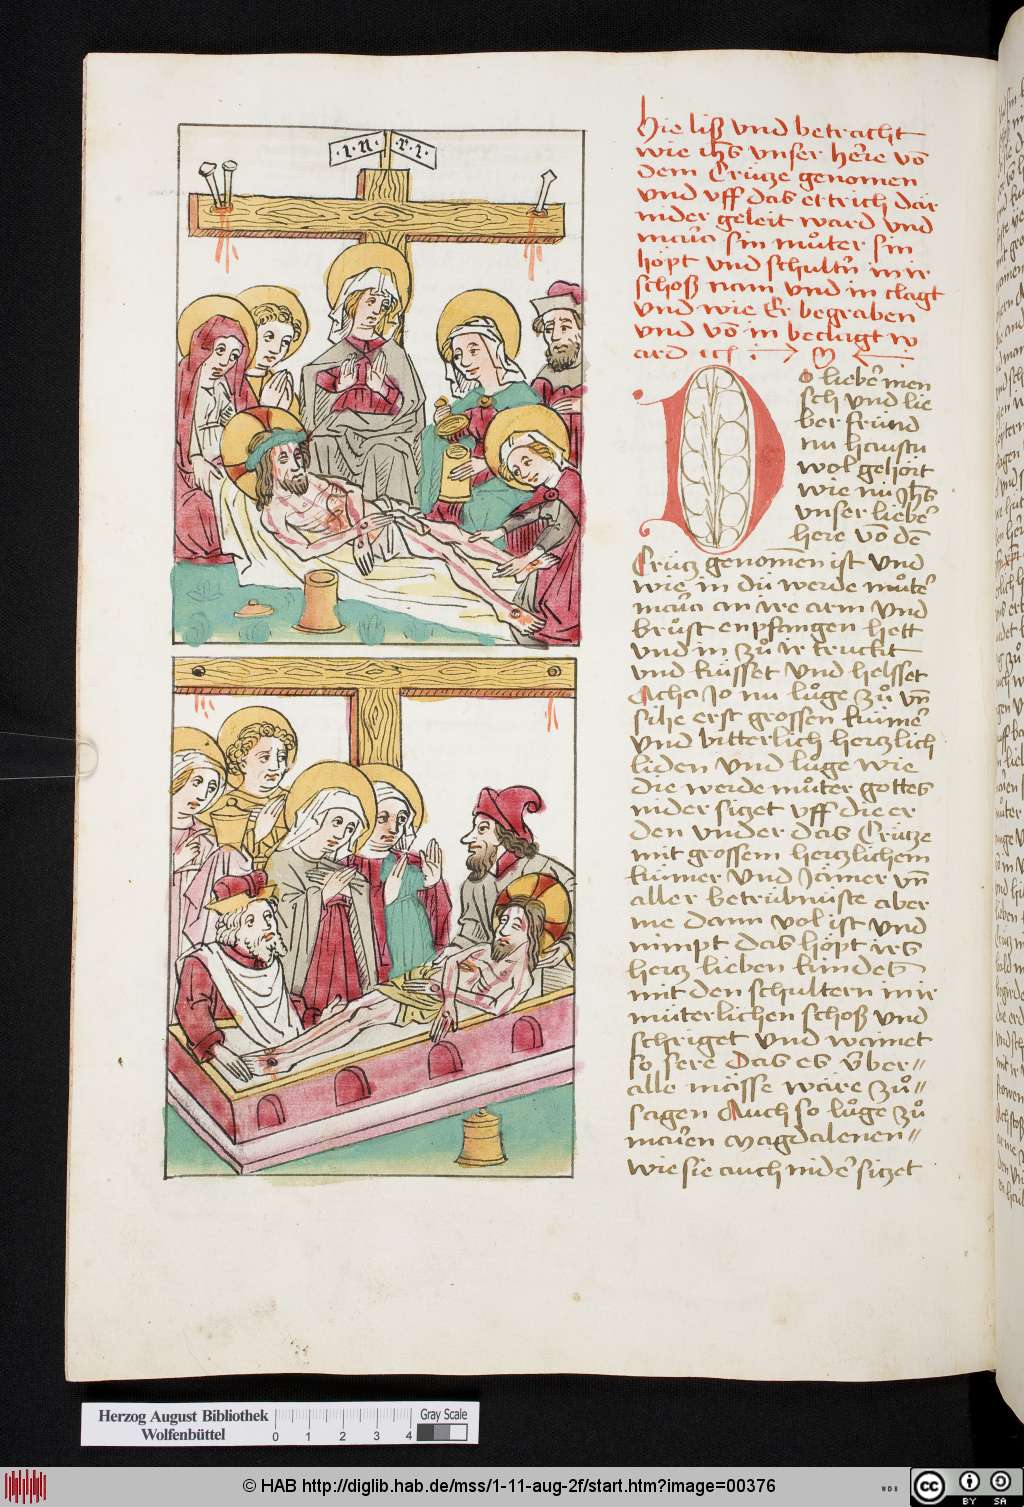 ·I·N· ·R·I·
Hie liß vnd betracht
wie ihs vnser herre võ
dem Crütze genomen
vnd vff das ertrich dar
nider geleit ward vnd
maria sin můter sin
hopt vnd schultñ in ir
schoß nam vnd in clagt
vnd wie Er begraben
vnd võ in beclagt w
ard
DO lieber men
sch vnd lie
ber fründ
nu haustu
wol gehört
wie nu Jhs
vnser lieber
here võ dẽ
Crütz genomen ist vnd
wie in dü werde můter
maria an ire arm vnd
brüst enpfangen hett
vnd in zů ir truckt
vnd küsset vnd helsset
Acha Jo nu lůge zů vñ
sihe erst grossen kumer
vnd bitterlich hertzlich
liden vnd lůge wie
die werde můter gottes
nider sitzet vff die er
den vnder das Crütze
mit grossem hertzlichem
kumer vnd Jamer vñ
aller betrübnüste aber
me dann vol ist vnd
nimpt das höpt irs
hertz lieben kindes
mit den schultern in ir
müterlichen schoß vnd
schriget vnd wainet
so sere Das es über//
alle mässe wäre zů//
sagen Auch so lůge zů
marien Magdalenen//
wie sie auch nider sitzet
Herzog August Bibliothek
Wolfenbüttel
0 1 2 3 4
Gray Scale
© HAB http://diglib.hab.de/mss/1-11-aug-2f/start.htm?image=00376
WDB
cc BY SA